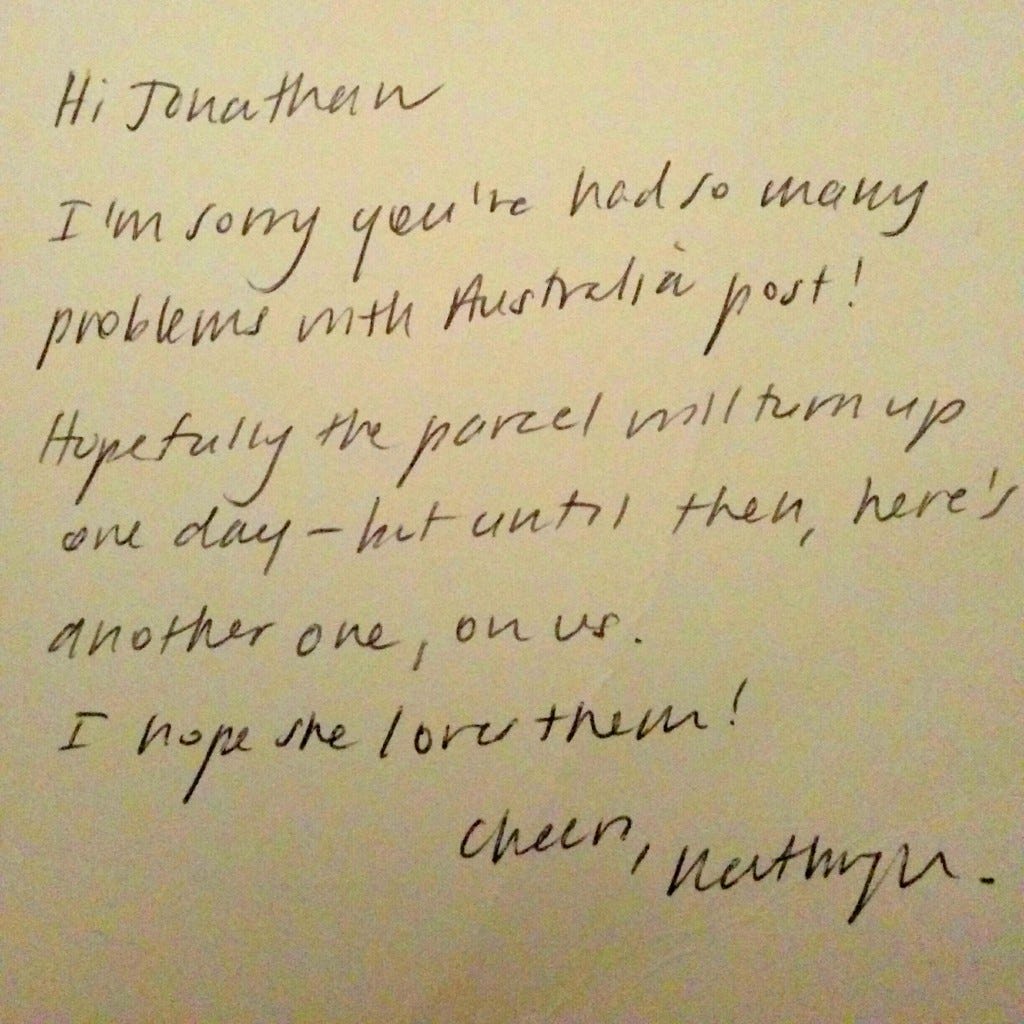 Hi Jonathan
I'm sorry you've had so many
problems with Australia post!
Hopefully the parcel will turn up
one day – but until then, here's
another one, on us.
I hope she loves them!
Cheers, Kathryn.